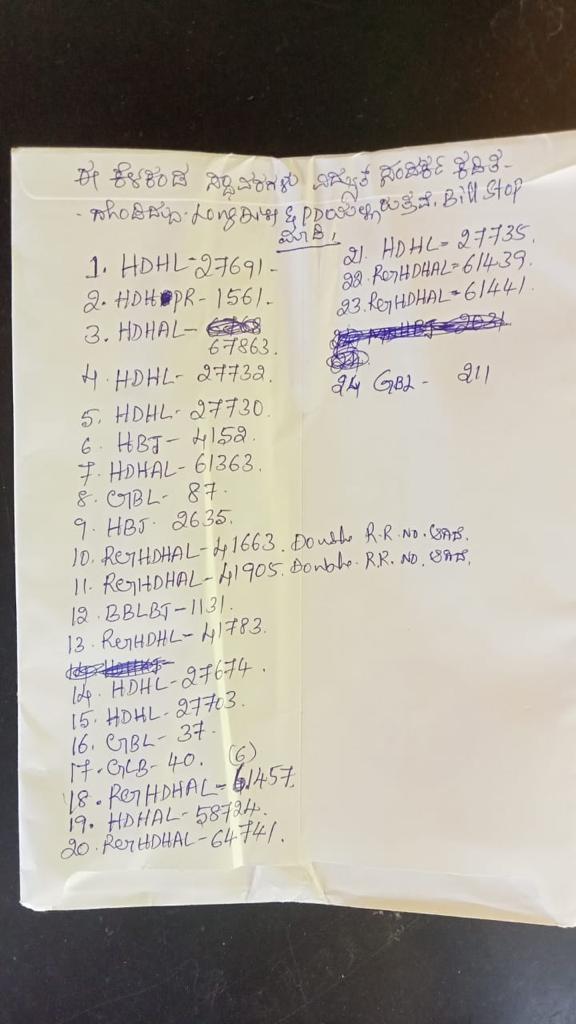 ಈ ಕೆಳಕಂಡ ವಿದ್ಯುತ್ ಸಂಪರ್ಕ ಕಡಿತ-
Long Dis & PD Bill Stop
ಮಾಡಿ.
1. HDHL-27691-
2. HDH PR-1561.
3. HDHAL-
67863.
4. HDHL- 27732.
5. HDHL- 27730.
6 HBJ-4152.
7. HDHAL-61363.
8. GBL- 87.
9. HBJ- 2635.
10. RGHDHAL-41663. Double R.R.NO. ಆಗಿದೆ.
11. RGHDHAL-41905. Double. R.R. NO. ಆಗಿದೆ.
12 BBLBJ-1131.
13. RGHDHL-41783.
14. HDHL-27674.
15. HDHL-27703.
16. GBL- 37.
17. GLB- 40. (6)
18. RGHDHAL-61457.
19. HDHAL-58724.
20. RGHDHAL-64741.
21. HDHL=27735.
22. RGHDHAL=61439.
23. RGHDHAL=61441.
24 GBL- 211